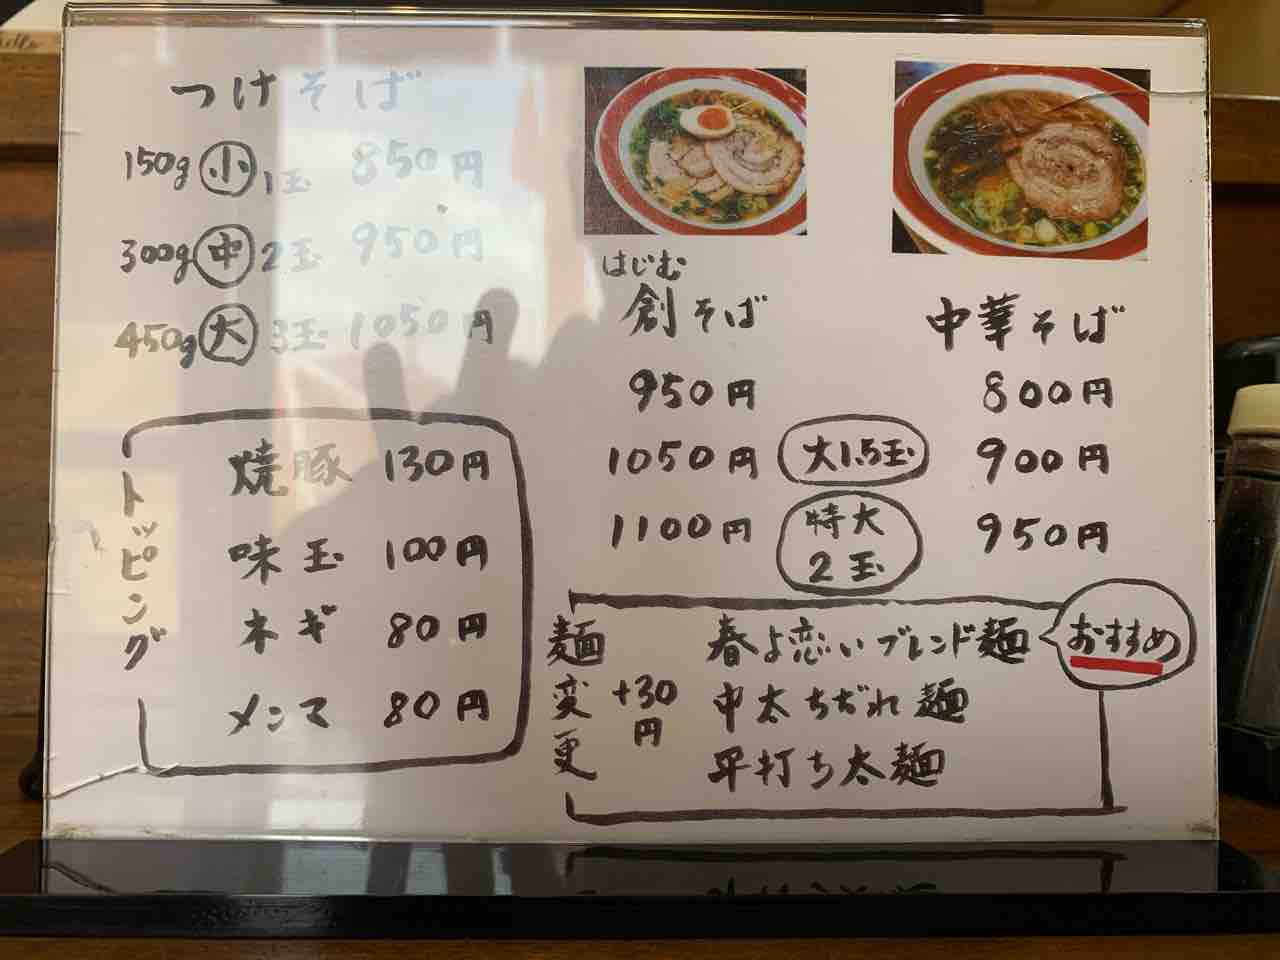 つけそば
150g 小 1玉 850円
300g 中 2玉 950円
450g 大 3玉 1050円
トッピング
焼豚 130円
味玉 100円
ネギ 80円
メンマ 80円
はじむ
創そば
950円
1050円
1100円
大1.5玉
特大
2玉
中華そば
800円
900円
950円
麺変更
+30円
春よ恋いブレンド麺
おすすめ
中太ちぢれ麺
平打ち太麺